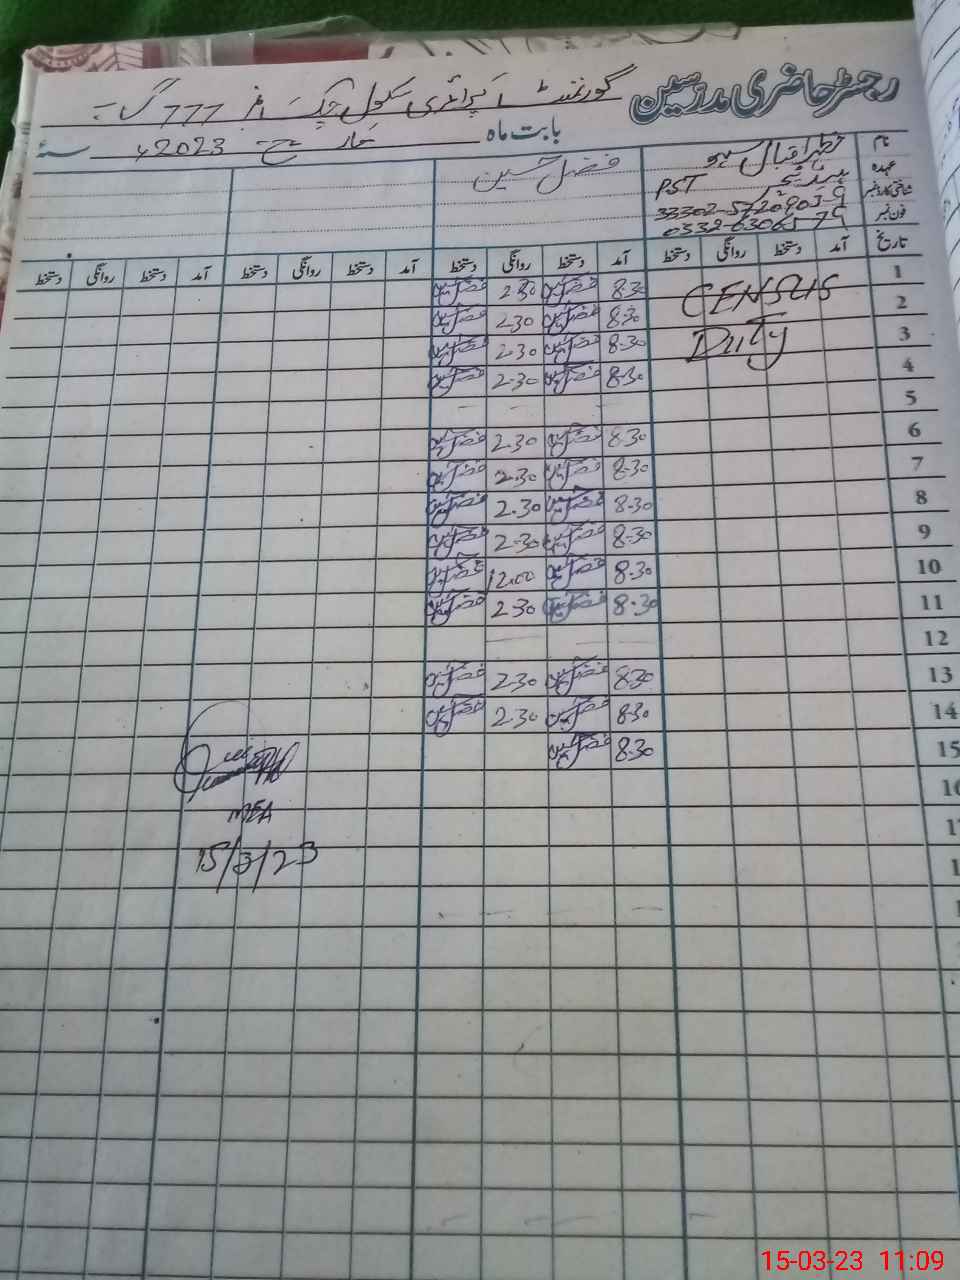 رجسٹر حاضری مدرسین
گورنمنٹ پرائمری سکول چک نمبر 777 گ ب
بابت ماہ مارچ 2023ء سنہ
نام خضر اقبال فضل حسین
عہدہ PST
شناختی کارڈ نمبر
فون نمبر 0332-6306579
تاریخ آمد دستخط روانگی دستخط آمد دستخط روانگی دستخط آمد دستخط روانگی دستخط آمد دستخط روانگی دستخط
1 CENSUS 8.30 فضل حسین 2.30 فضل حسین
2 8.30 فضل حسین 2.30 فضل حسین
3 Duty 8.30 فضل حسین 2.30 فضل حسین
4 8.30 فضل حسین 2.30 فضل حسین
5
6 8.30 فضل حسین 2.30 فضل حسین
7 8.30 فضل حسین 2.30 فضل حسین
8 8.30 فضل حسین 2.30 فضل حسین
9 8.30 فضل حسین 2.30 فضل حسین
10 8.30 فضل حسین 12.00 فضل حسین
11 8.30 فضل حسین 2.30 فضل حسین
12
13 8.30 فضل حسین 2.30 فضل حسین
14 8.30 فضل حسین 2.30 فضل حسین
15 8.30 فضل حسین
16
MEA
15/3/23
15-03-23 11:09